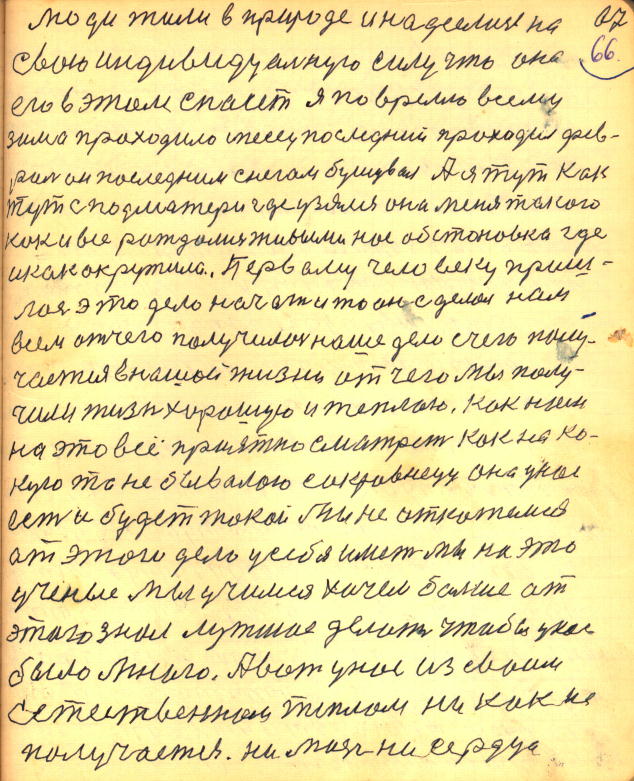 люди жили в природе и надеялис на 07
свою индивидуалную силу что она 66.
его в этом спасет я поврелю всему
зима проходило месец последний проходил фев-
рал он последним снегом бушувал А я тут как
тут с под матери где узялся она меня такого
как и все раждалия живыми нас обстоновка где
и как окружила. Первому человеку приш-
лося это дело начать и то он сделал нам
всем отчего получилос наше дело с чего полу-
чается в нашой жизни от чего мы полу-
чили жизн хорошую и теплаю. Как нам
на это всё приятно сматрет как на ка-
куюто не бывалою сакровнецу она у нас
ест и будет такой Мы не откажемся
от этого дело у себя имет мы на это
учение мы учимся хачем болше от
этого знат лутшае делать чтобы у нас
было много. А вот у нас из своим
естественном теплом ни как не
получается. ни мать ни сердца